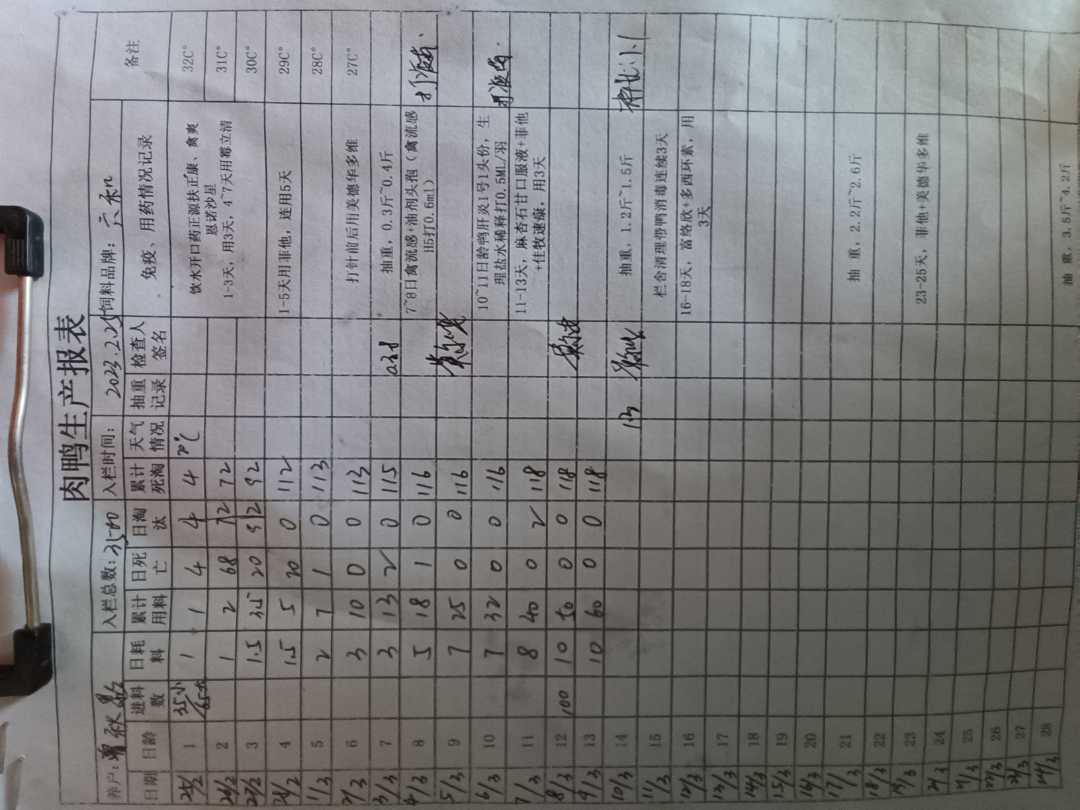 肉鸭生产报表
养户: 入栏总数: 3500 入栏时间: 2023.2.25 饲料品牌: 六和
日期 日龄 进料数 日耗料 累计用料 日死亡 日淘汰 累计死淘 天气情况 抽重记录 检查人签名 免疫、用药情况记录 备注
25/2 1 35小 65大 1 1 4 4 4 20℃ 饮水开口药正源扶正康、禽爽恩诺沙星 32C°
26/2 2 1 2 68 72 72 1-3天,用3天,4~7天用霉立清 31C°
27/2 3 1.5 3.5 20 92 92 30C°
28/2 4 1.5 5 20 0 112 1-5天用菲他,连用5天 29C°
1/3 5 2 7 1 0 113 28C°
2/3 6 3 10 0 0 113 打针前后用美德华多维 27C°
3/3 7 3 13 2 0 115 抽重,0.3斤~0.4斤
4/3 8 5 18 1 0 116 7~8日禽流感+油剂头孢(禽流感H5打0.6ml)
5/3 9 7 25 0 0 116
6/3 10 7 32 0 0 116 10~11日龄鸭肝炎1号1头份,生理盐水稀释打0.5ML/羽
7/3 11 8 40 0 2 118 11-13天,麻杏石甘口服液+菲他+佳牧速瘊,用3天
8/3 12 100 10 50 0 0 118
9/3 13 10 60 0 0 118
10/3 14 抽重,1.2斤~1.5斤
11/3 15 栏舍清理带鸭消毒连续3天
12/3 16 16-18天,富络欣+多西环素,用3天
13/3 17
14/3 18
15/3 19
20
17/3 21 抽重,2.2斤~2.6斤
18/3 22
19/3 23 23-25天,菲他+美德华多维
24
25
26
27
28 抽重,3.5斤~4.2斤